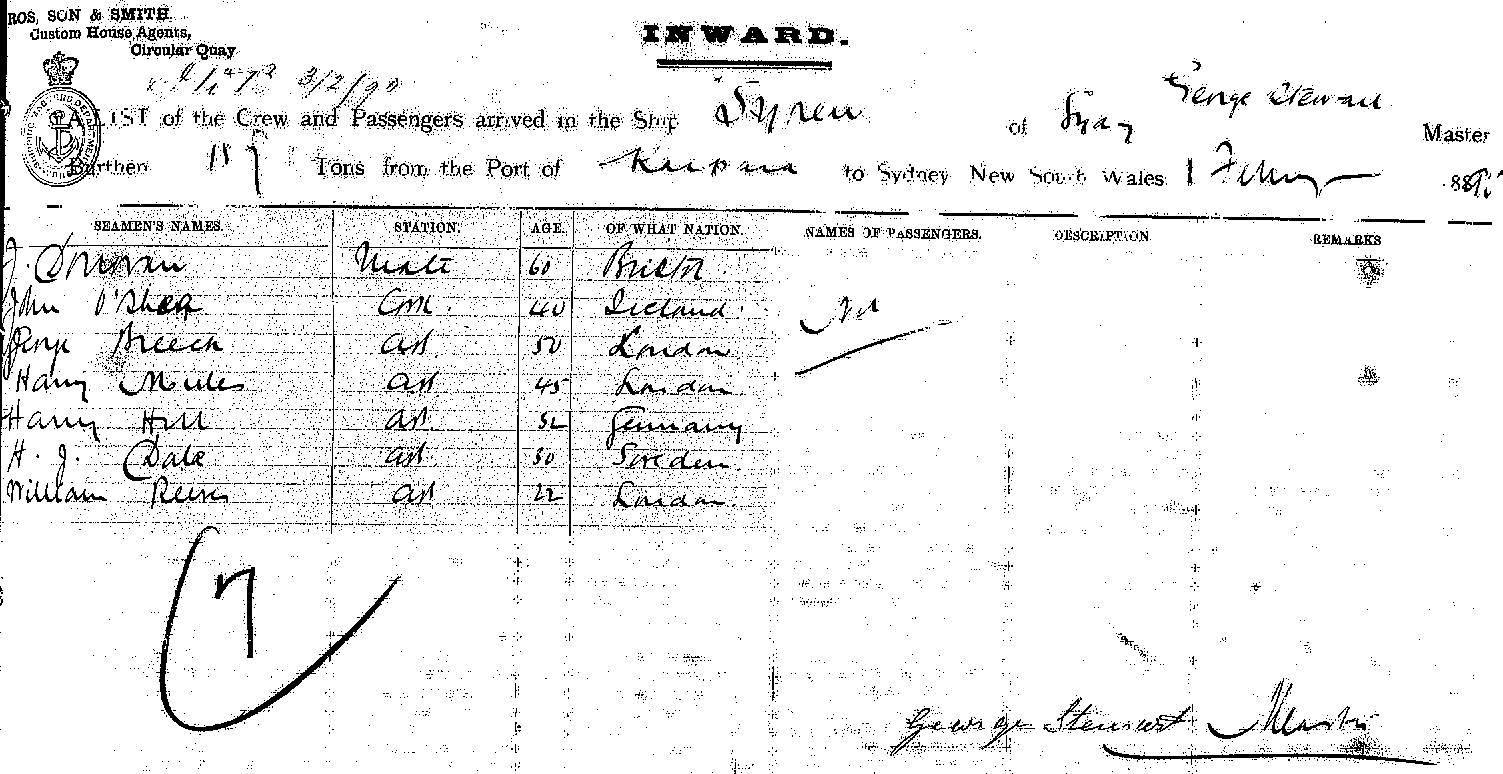 ROS, SON & SMITH.
Custom House Agents,
Circular Quay
INWARD.
3/2/90
George Stewart
A LIST of the Crew and Passengers arrived in the Ship Syren of Sydy Master
Burthen Tons from the Port of Kaipara to Sydney New South Wales 1 February 1890
SEAMEN'S NAMES. STATION. AGE. OF WHAT NATION. NAMES OF PASSENGERS. DESCRIPTION REMARKS
J. Donovan Mate 60 Bristol
John O'Shea Cook 40 Ireland Nil
George Breech AB 50 London
Harry Miles AB 45 London
Harry Hill AB 32 Germany
H. J. Dale AB 30 Sweden
William AB 22 London
7
George Stewart Master